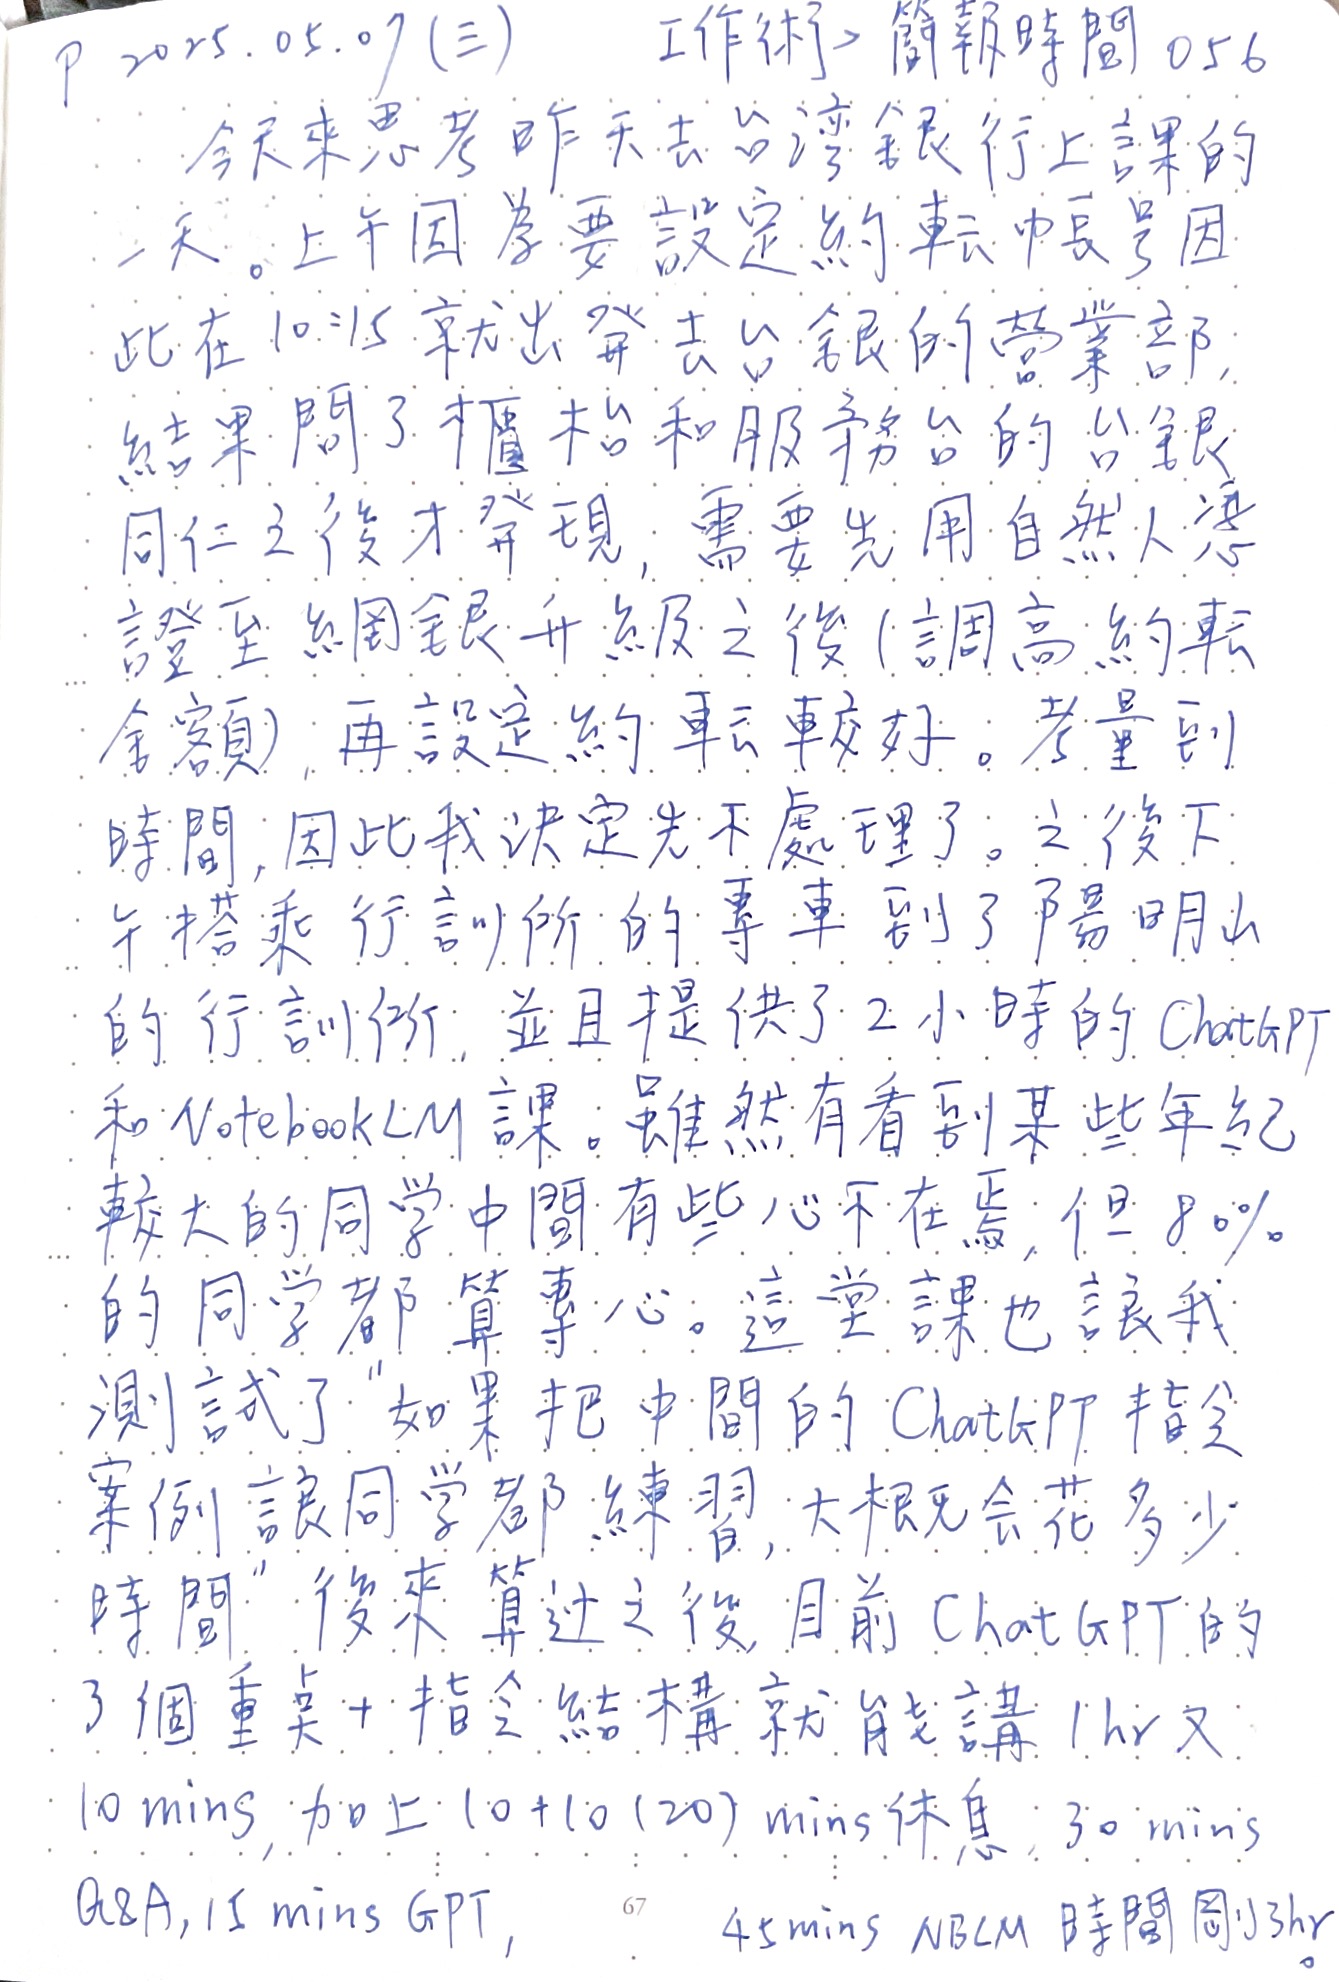 P 2025.05.07 (三) 工作術> 簡報時間 056
今天來思考昨天去台湾銀行上課的
一天。上午因為要設定約転帳号因
此在10:15就出發去台銀的營業部,
結果問了櫃枱和服務台的台銀
同仁之後才發現, 需要先用自然人憑
證至網銀升級之後(調高約転
金額), 再設定約転較好。考量到
時間, 因此我決定先不處理了。之後下
午搭乘行訓所的專車到了陽明山
的行訓所, 並且提供了2小時的ChatGPT
和NotebookLM課。雖然有看到某些年紀
較大的同学中間有些心不在焉, 但80%
的同学都算專心。這堂課也讓我
測試了"如果把中間的ChatGPT指令
案例讓同学都練習, 大概会花多少
時間"後來算过之後, 目前ChatGPT的
3個重点+指令結構就能講1hr又
10mins, 加上10+10(20)mins休息, 30mins
Q&A, 15 mins GPT, 45mins NBLM 時間剛3hr。
67